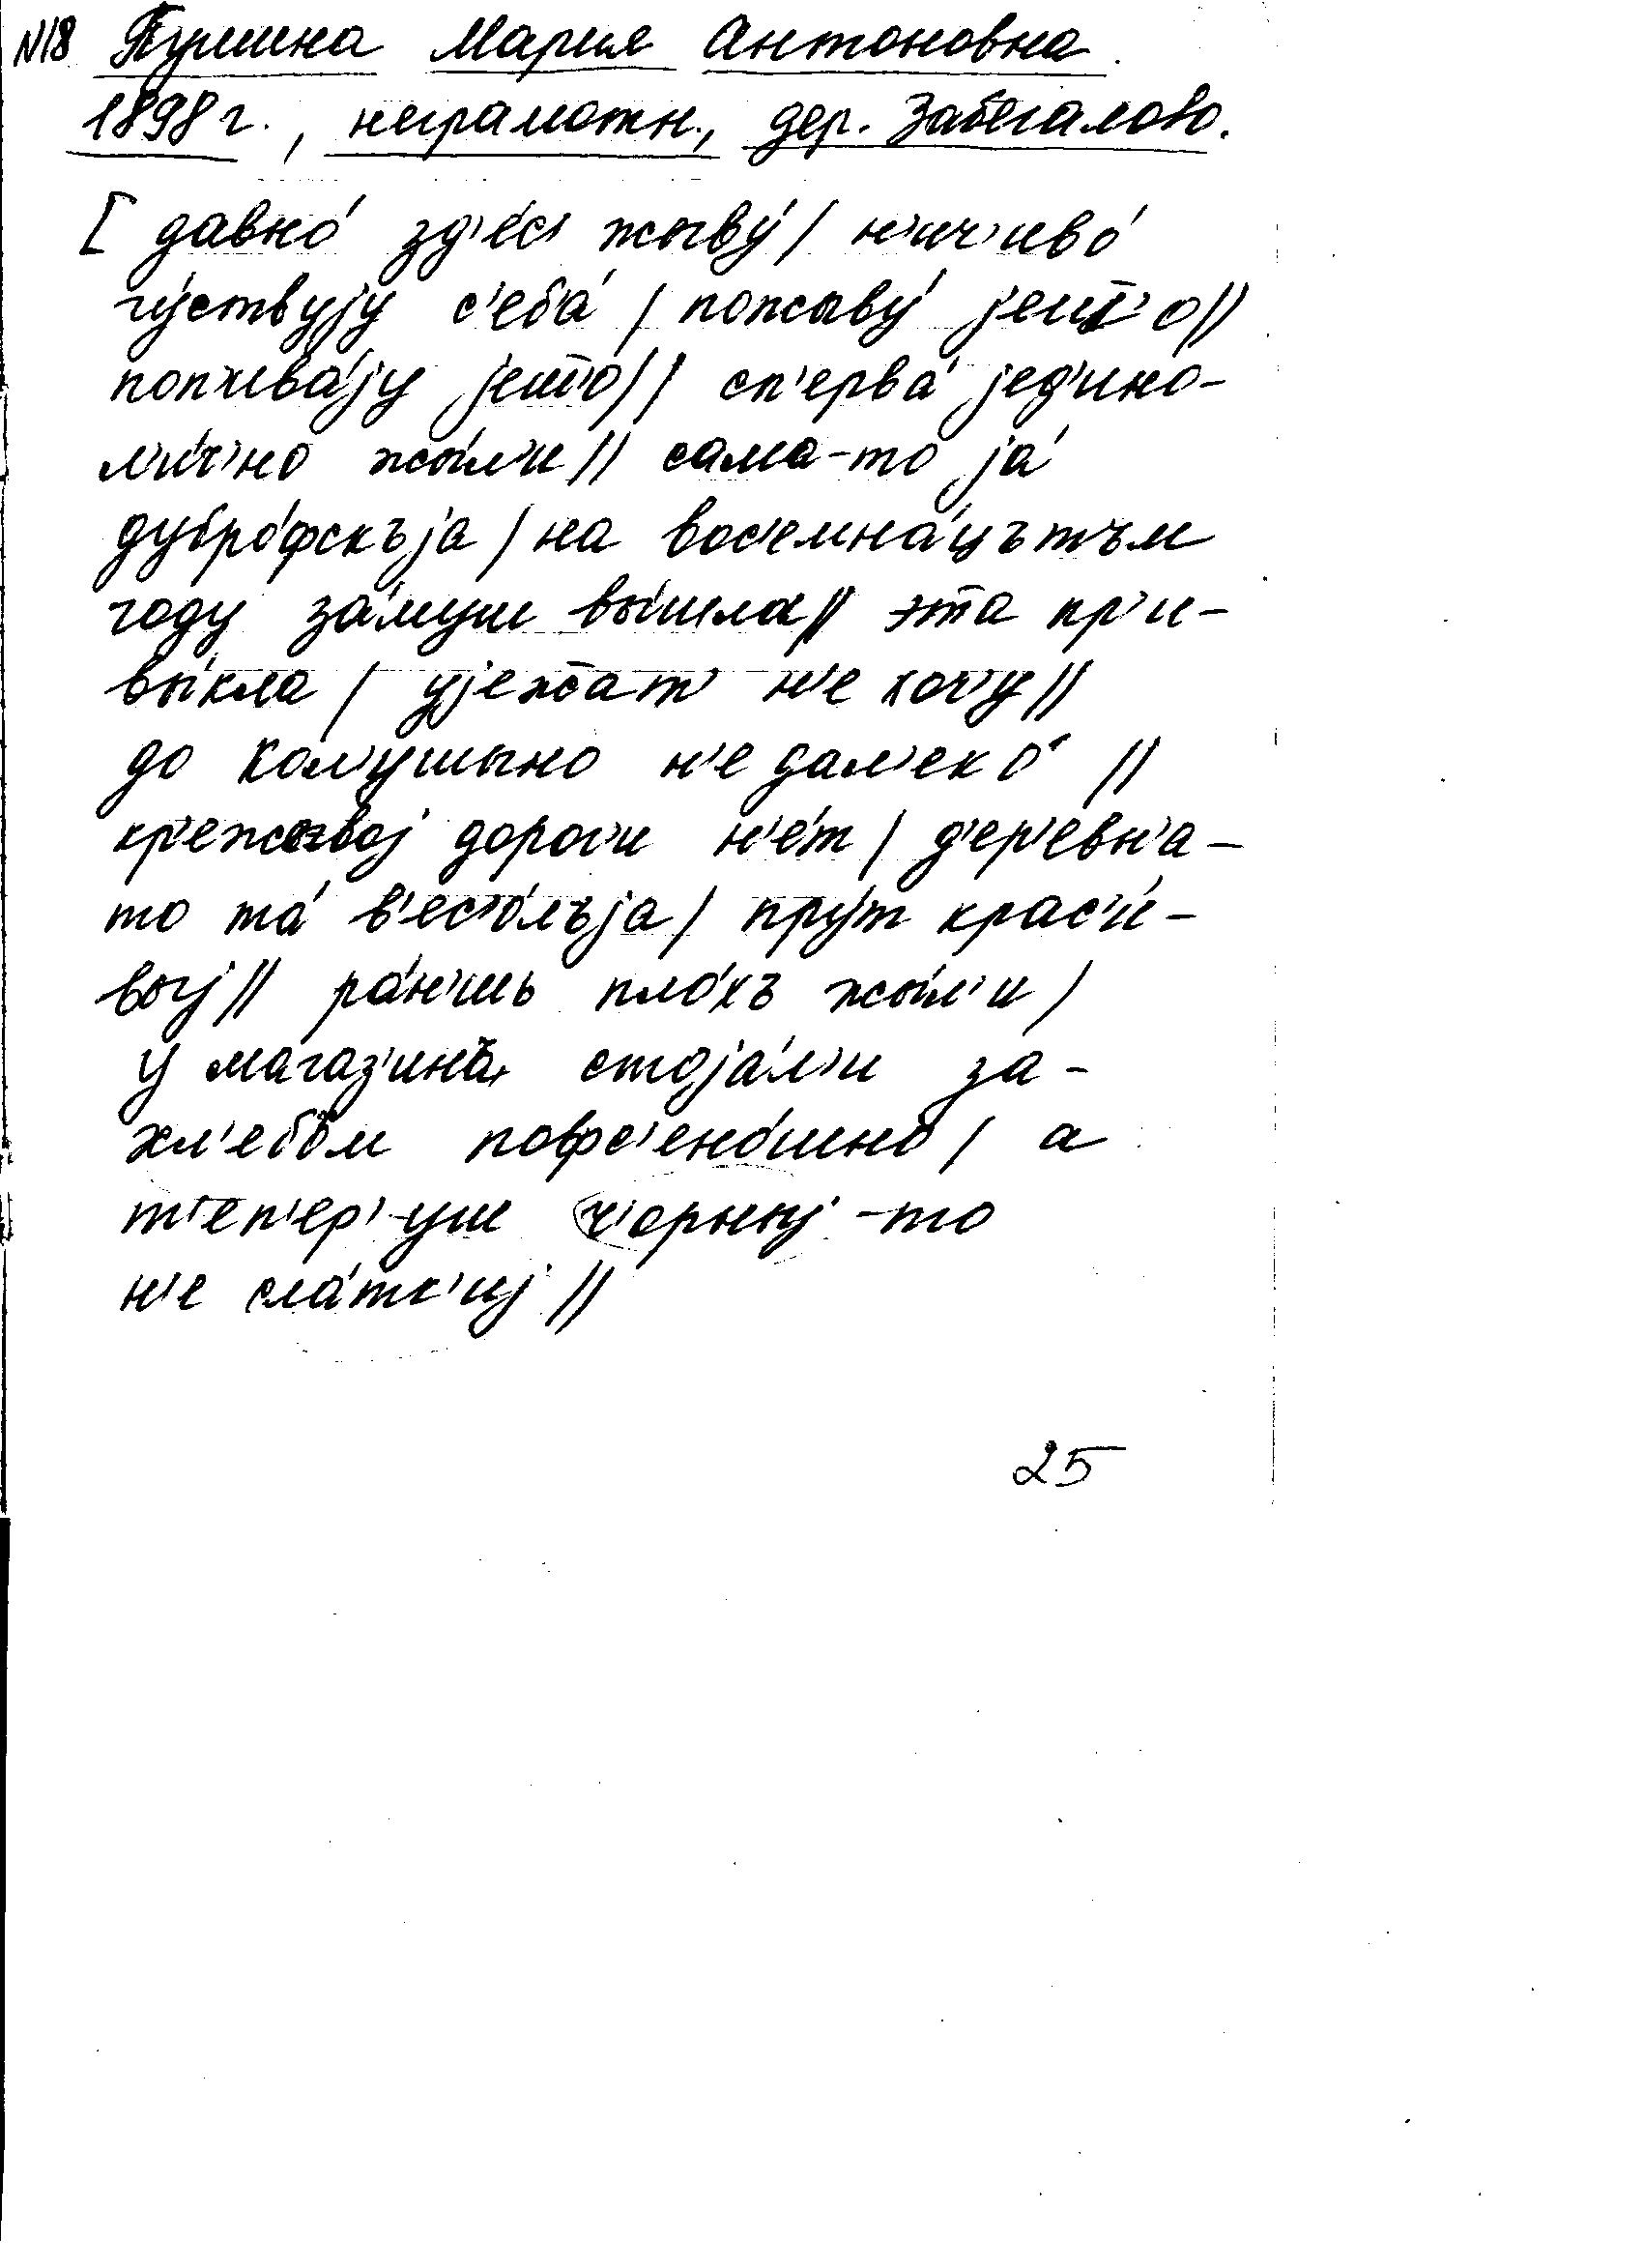 N18 Пушина Мария Антоновна.
1898 г., неграмотн., дер. Забегалово.
[ давно́ зд'е́с' жыву́ / н'ич'иво́
ч'у́ствују с'еб'а́ / пожыву́ јеш̄'о //
пожыва́ју јеш̄'о // сп'ерва́ јед'ино-
л'и́ч'но жы́л'и // сама-то ја́
дубро́фскъја / на вос'емна́цътъм
году за́муш вы́шла // эта пр'и-
вы́кла / ујеж̄ат' н'е хоч'у //
до Кол'ушыно н'е дал'еко́ //
кр'ежовој дорог'и н'е́т / д'ер'евн'а-
то та́ в'ес'о́лъја / пру́т крас'и́-
выј // ра́н'шь пло́хъ жы́л'и /
у магаз'ина стоја́л'и за-
хл'ебом пофс'ено́шно / а
т'еп'ер' уш ч'орныј-то
н'е сла́тк'иј //
25